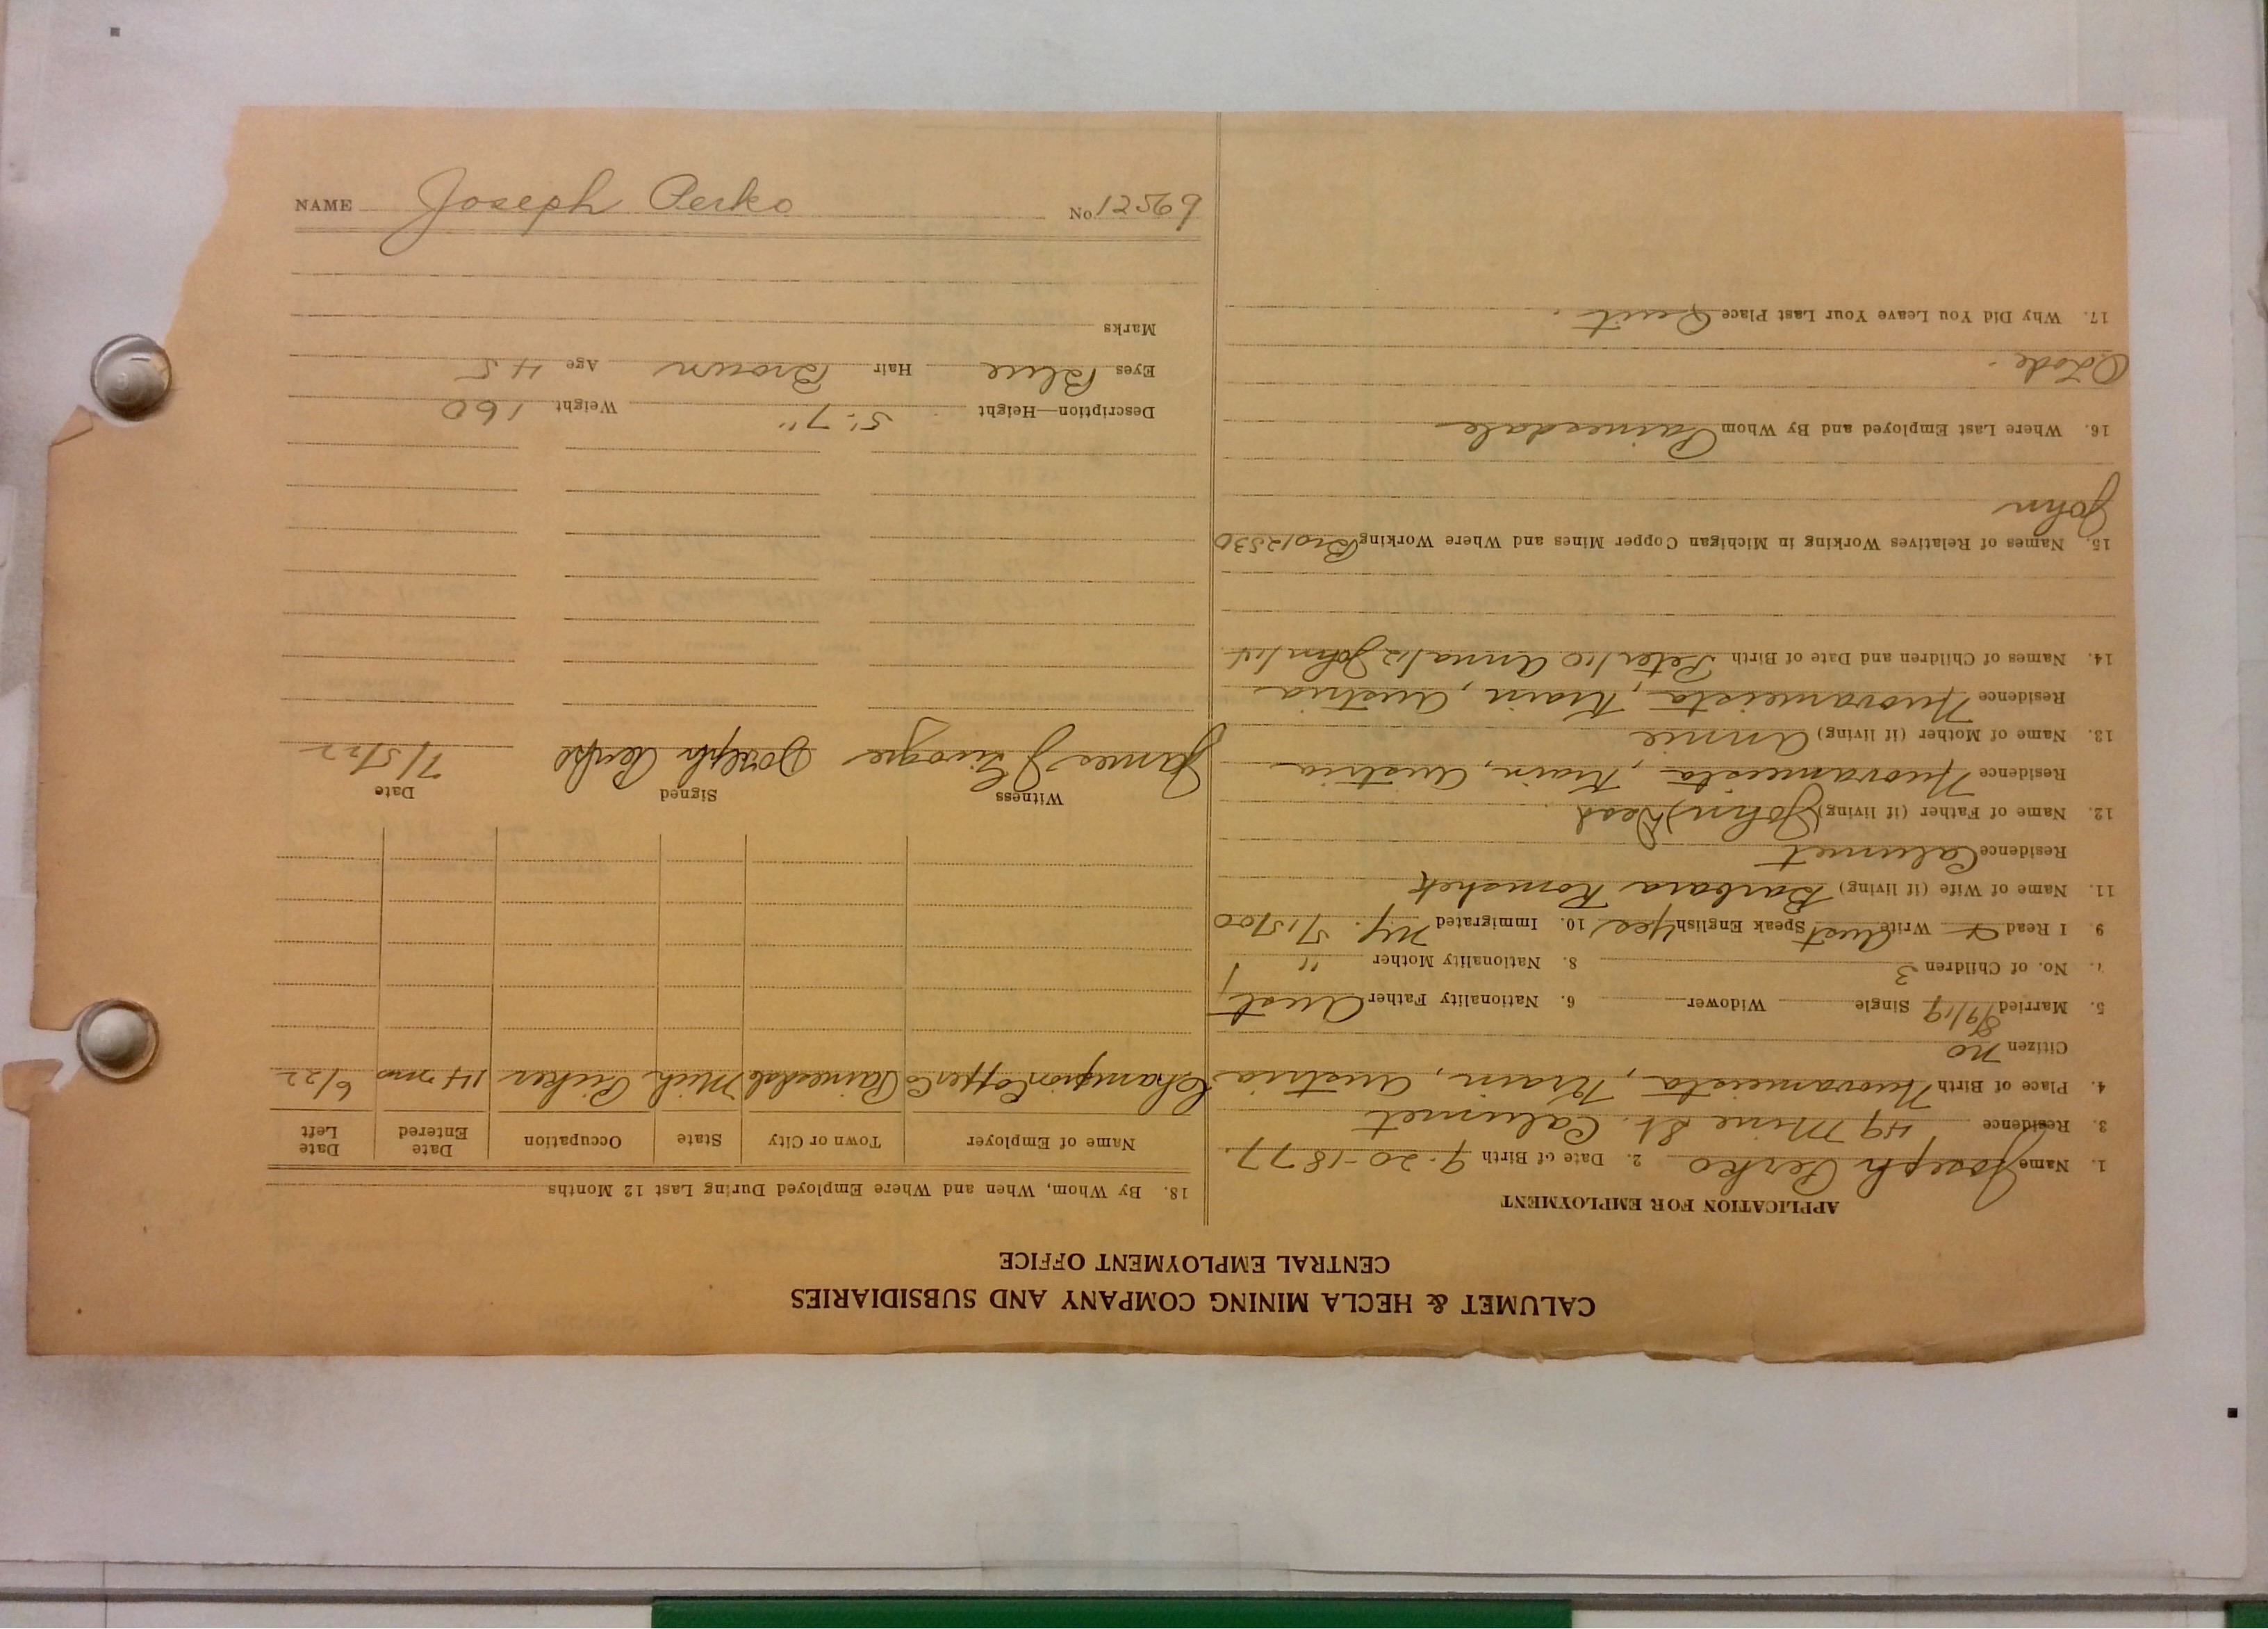 CALUMET & HECLA MINING COMPANY AND SUBSIDIARIES
CENTRAL EMPLOYMENT OFFICE
APPLICATION FOR EMPLOYMENT
1. Name Joseph Perko 2. Date of Birth 9-20-1877.
3. Residence 49 Mine St. Calumet
4. Place of Birth Nuovameista, Krain, Austria
Citizen no
5. Married 8/9/19 Single Widower 6. Nationality Father Aust
7. No. of Children 3 8. Nationality Mother "
9. I Read & Write Aust Speak English yes 10. Immigrated NY. 5/15/00
11. Name of Wife (if living) Barbara Romshek
Residence Calumet
12. Name of Father (if living) (John) Dead
Residence Nuovameista, Krain, Austria
13. Name of Mother (if living) Annie
Residence Nuovameista, Krain, Austria
14. Names of Children and Date of Birth Peter/10 Anna/12 John/14
15. Names of Relatives Working in Michigan Copper Mines and Where Working Bro 12530
John
16. Where Last Employed and By Whom Painesdale
O Lode.
17. Why Did You Leave Your Last Place Quit.
18. By Whom, When and Where Employed During Last 12 Months
Name of Employer Town or City State Occupation Date Entered Date Left
Champion Copper Co Painesdale Mich Picker 14 mos 6/22
Witness Signed Date
James J Joseph Perko 7/5/22
Description—Height 5'-7" Weight 160
Eyes Blue Hair Brown Age 45
Marks
NAME Joseph Perko No. 12569